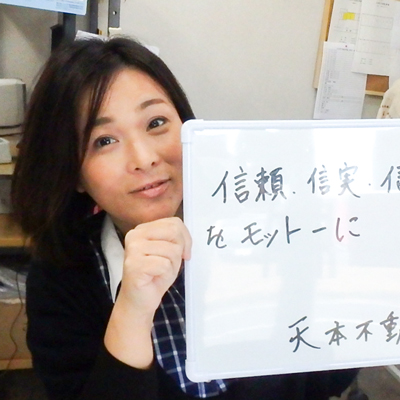 信頼.信実.信
をモットーに
天本不動